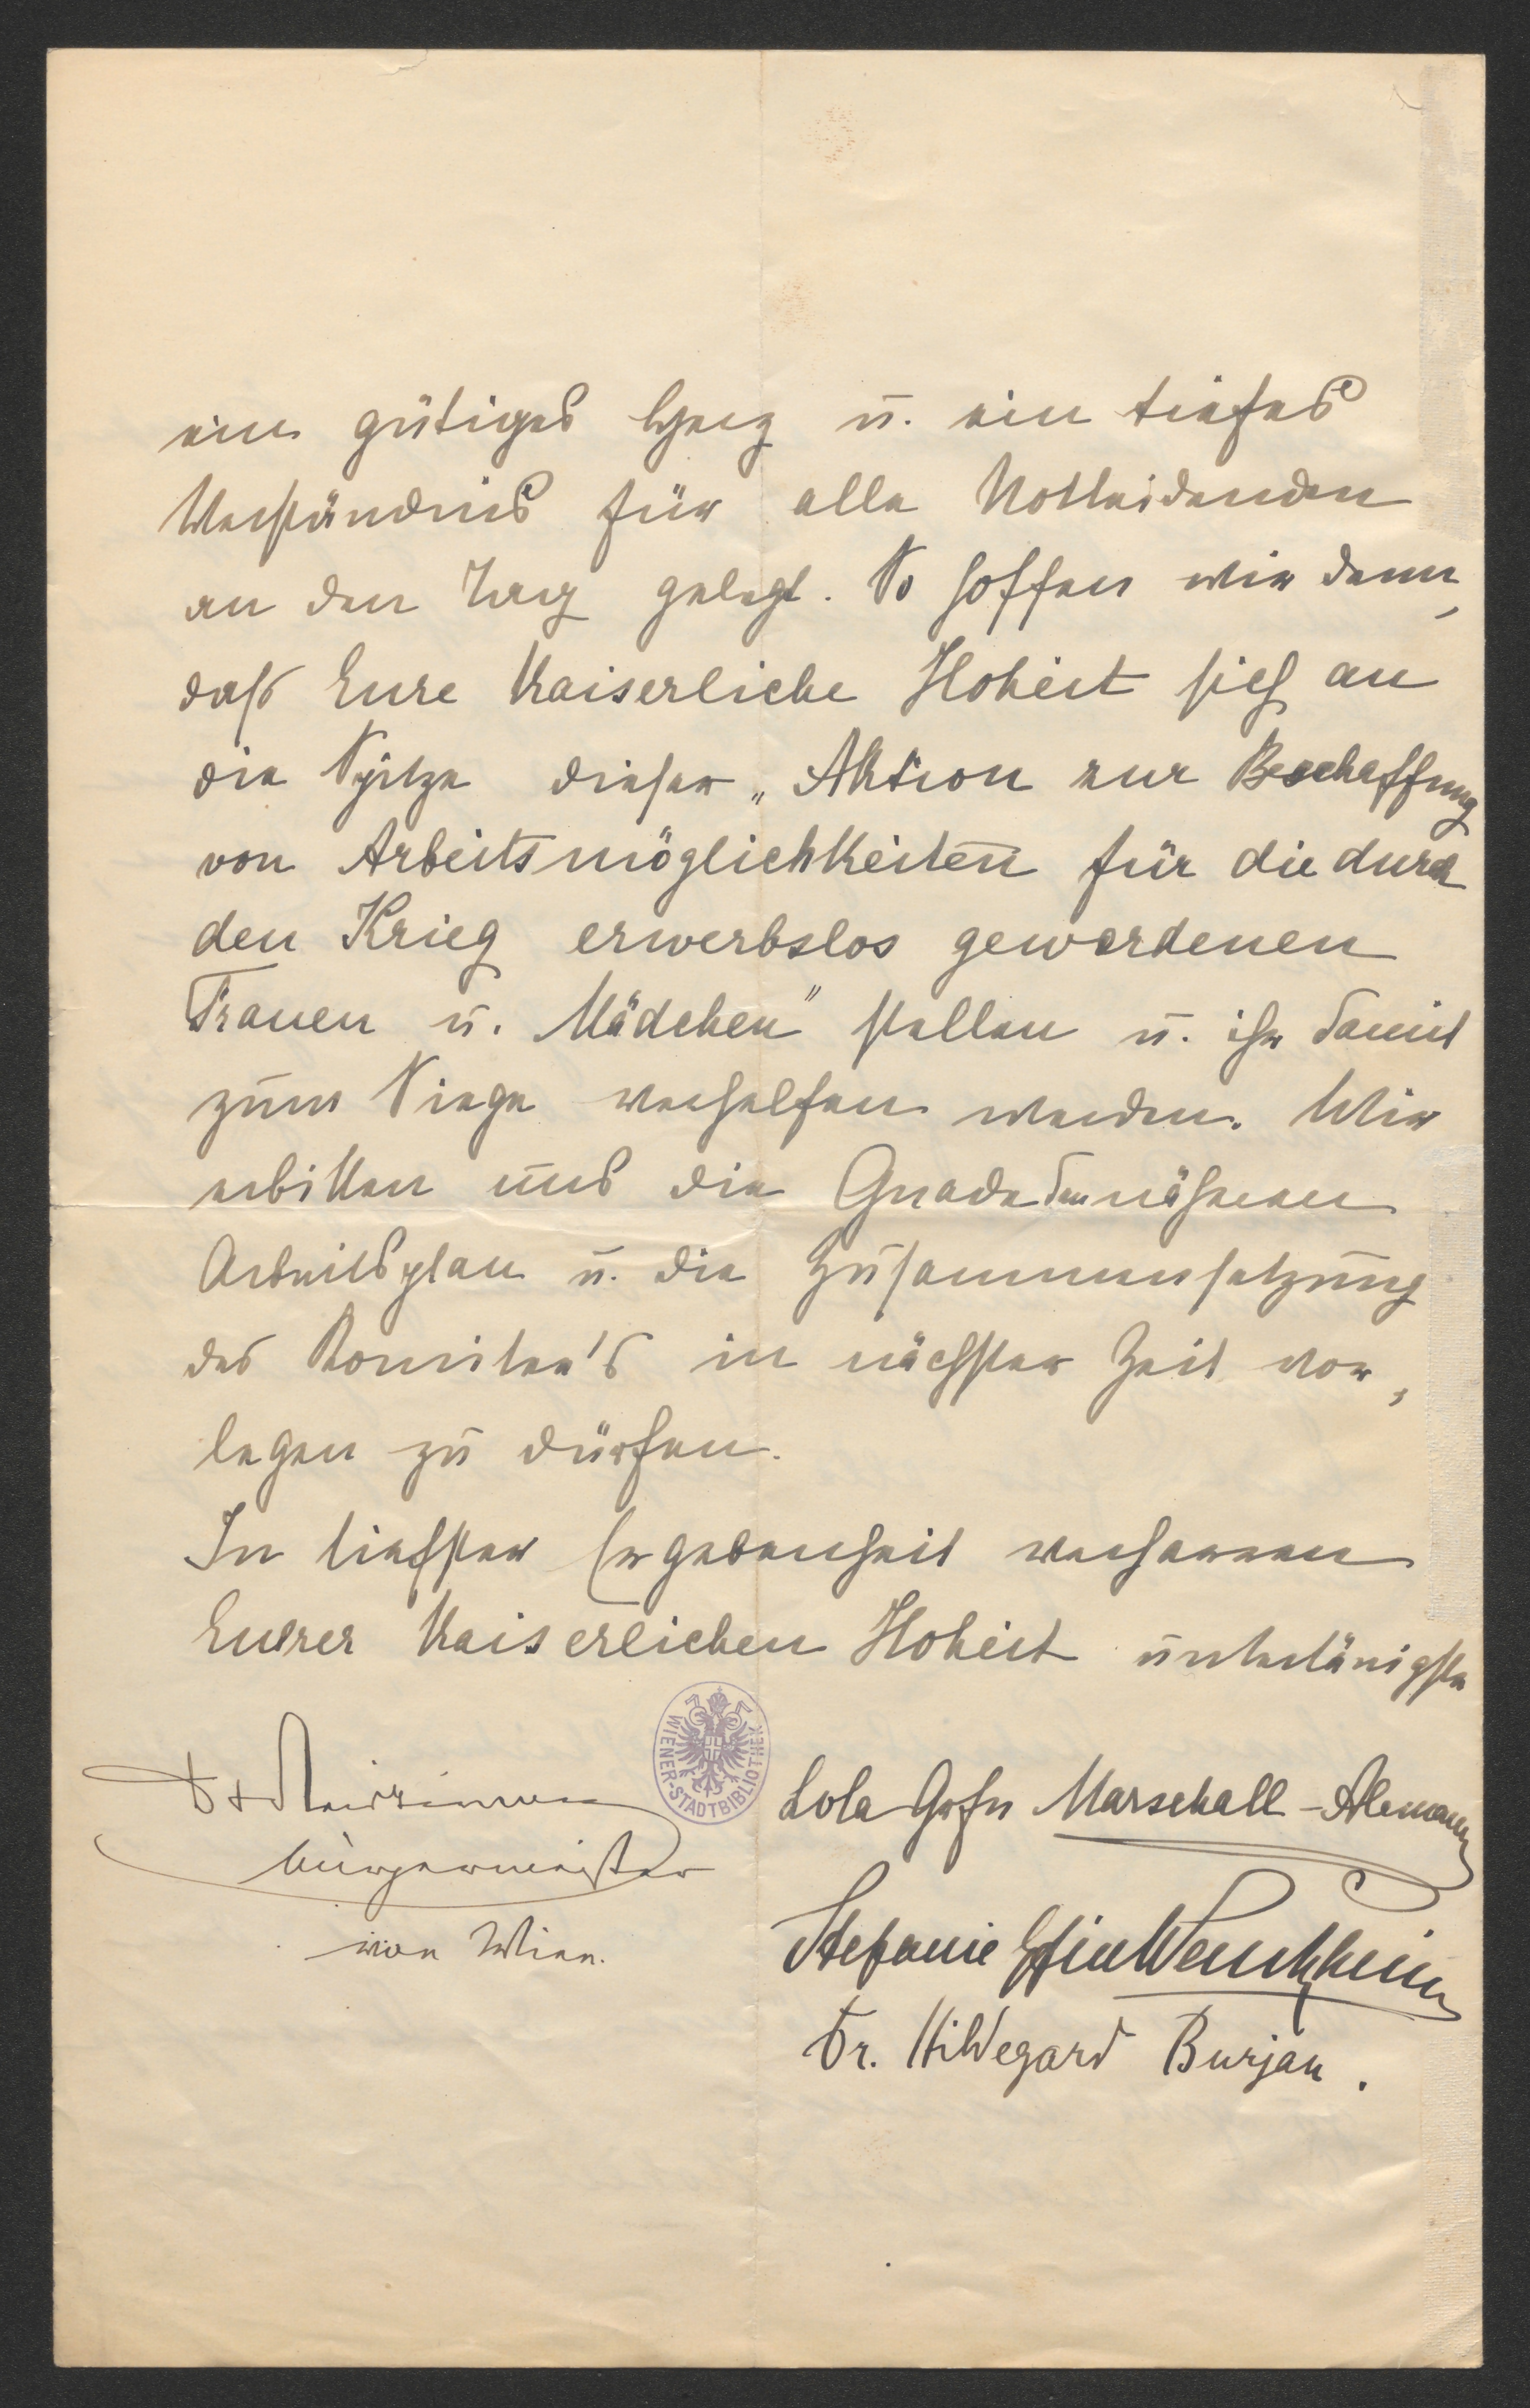 ein gütiges Herz u. ein tiefes
Verständnis für alle Notleidenden
an den Tag gelegt. So hoffen wir denn,
daß Eure Kaiserliche Hoheit sich an
die Spitze dieser „Aktion zur Beschaffung
von Arbeitsmöglichkeiten für die durch
den Krieg erwerbslos gewordenen
Frauen u. Mädchen" stellen u. ihr damit
zum Siege verhelfen werden. Wir
erbitten uns die Gnade den näheren
Arbeitsplan u. die Zusammensetzung
des Komitee's in nächster Zeit vor-
legen zu dürfen.
In tiefster Ergebenheit verharren
Eurer Kaiserlichen Hoheit untertänigste
Dr Weiskirchner
Bürgermeister
von Wien.
WIENER-STADTBIBLIOTHEK
Lola Gräfin Marschall-Alemann
Stefanie Gfin Wenckheim
Dr. Hildegard Burjan.